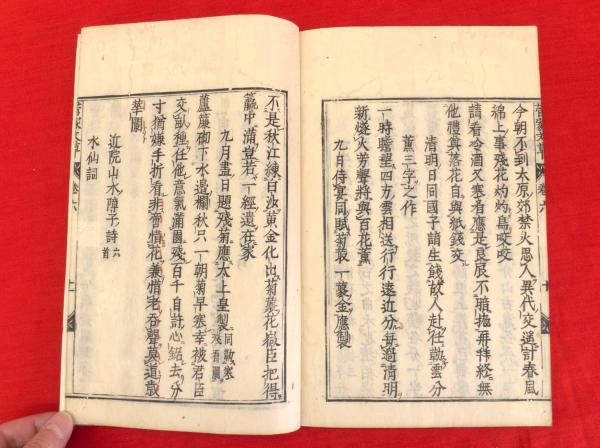 今朝不到太原郊禁火思人異代交遙計春風
綿上事殘花灼灼鳥咬咬
請看冷酒又寒肴應是良辰不暗抛再拜終無
他禮奠落花自與紙錢交
清明日同國子諸生餞故人赴任勒雲分
薫三字之作
一時瞻望四方雲相送行行遠近分毎過清明
新燧火芳聲將與百花薫
九日侍宴同賦菊散一叢金應製
不是秋江練白沙黄金化出菊叢花微臣把得
籯中滿豈若一經遺在家
九月盡日題殘菊應太上皇製
蘆簾砌下水邊欄秋只一朝菊早寒幸被君臣
交臥種任他意氣滿園殘百千自詐心錯去分
寸猶嫌手折看非啻惜花兼惜老呑聲莫道歲
華闌
近院山水障子詩 六首
水仙詞
菅家文草 卷六